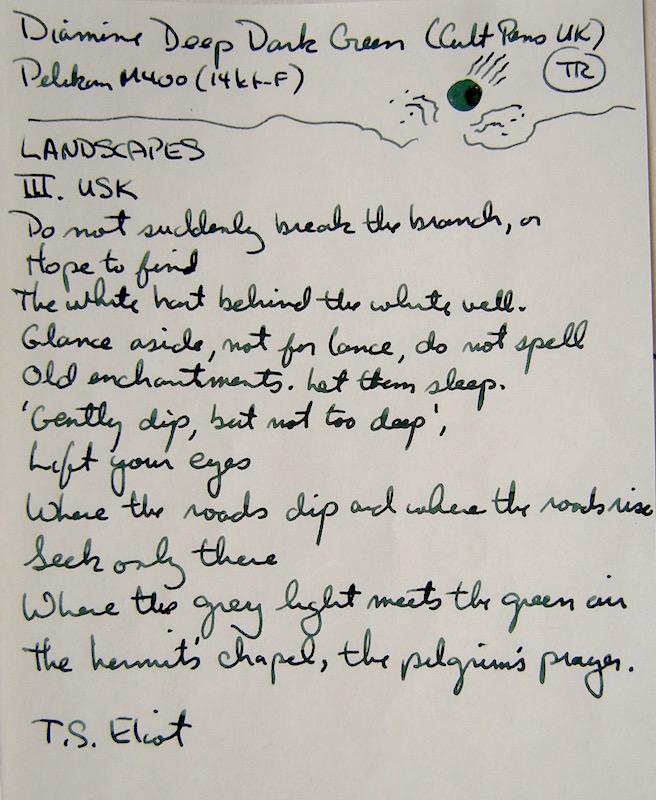 Diamine Deep Dark Green (Cult Pens UK)
Pelikan M400 (14kt-F)
TR
LANDSCAPES
III. USK
Do not suddenly break the branch, or
Hope to find
The white hart behind the white well.
Glance aside, not for lance, do not spell
Old enchantments. Let them sleep.
'Gently dip, but not too deep',
Lift your eyes
Where the roads dip and where the roads rise
Seek only there
Where the grey light meets the green air
The hermit's chapel, the pilgrim's prayer.
T.S. Eliot